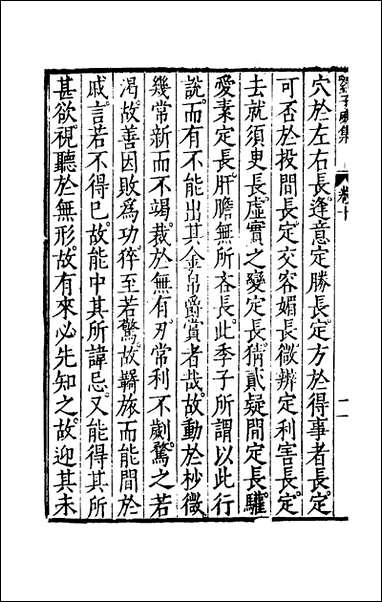 卷十
二
穴於左右長。逢意定勝長。定方於得事者長。定
可否於投間長。定交容媚長。微辨定利害長。定
去就須臾長。虛實之變定長。猜貳疑間定長。驩
愛素定長。肝膽無所吝長。此季子所謂以此行
說。而有不能出其金帛爵賞者哉。故動於杪微。
幾常新而不竭。裁於無有。刃常利不劌。驚之若
渴。故善因敗為功。猝至若驚。故羇旅而能間於
戚。言若不得已。故能中其所諱忌。又能得其所
甚欲。視聽於無形。故有來必先知之。故迎其未